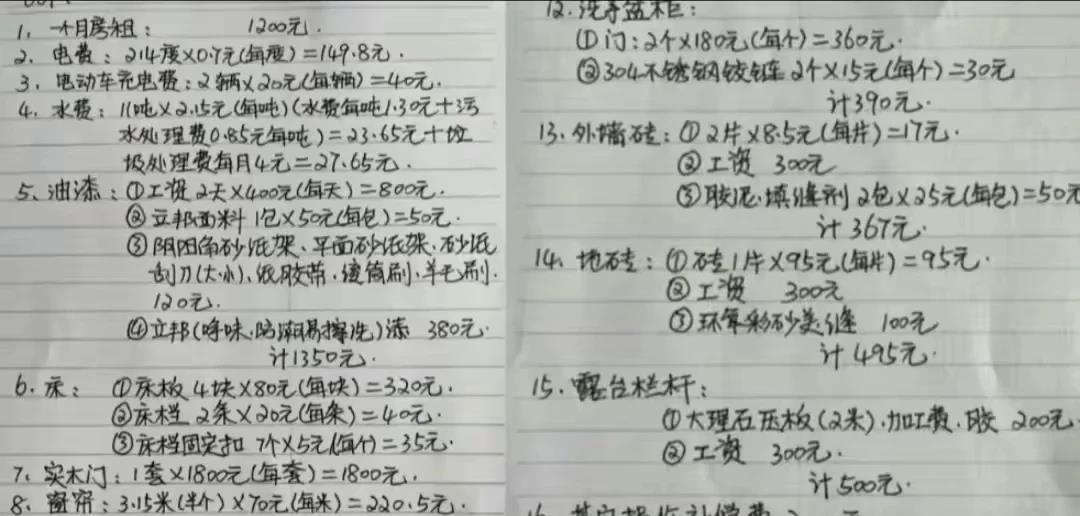 1. 一个月房租: 1200元.
2. 电费: 214度×0.7元(每度)=149.8元.
3. 电动车充电费: 2辆×20元(每辆)=40元.
4. 水费: 11吨×2.15元(每吨)(水费每吨1.30元+污
水处理费0.85元每吨)=23.65元+垃
圾处理费每月4元=27.65元.
5. 油漆: ①工资 2天×400元(每天)=800元.
②立邦面料 1包×50元(每包)=50元.
③阴阳角砂纸架、平面砂纸架、砂纸
刮刀(大小)、纸胶带、滚筒刷、羊毛刷.
120元.
④立邦(净味.防潮易擦洗)漆 380元.
计1350元.
6. 床: ①床板 4块×80元(每块)=320元.
②床档 2条×20元(每条)=40元.
③床档固定扣 7个×5元(每个)=35元.
7. 实木门: 1套×1800元(每套)=1800元.
8. 窗帘: 3.15米(半个)×70元(每米)=220.5元.
12. 洗手盆柜:
①门: 2个×180元(每个)=360元.
②304不锈钢铰链 2个×15元(每个)=30元
计390元.
13. 外墙砖: ①2片×8.5元(每片)=17元.
②工资 300元
③胶泥.填缝剂 2包×25元(每包)=50元
计 367元.
14. 地砖: ①砖1片×95元(每片)=95元.
②工资 300元
③环氧彩砂美缝 100元
计 495元.
15. 露台栏杆:
①大理石压板(2米).加工费.胶 200元.
②工资 300元.
计500元.